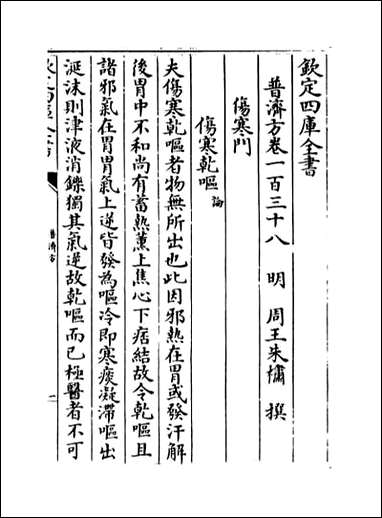 欽定四庫全書
普濟方卷一百三十八　明　周王朱橚　撰
傷寒門
傷寒乾嘔論
夫傷寒乾嘔者物無所出也此因邪熱在胃或發汗解
後胃中不和尚有蓄熱薫上焦心下痞結故令乾嘔且
諸邪氣在胃胃氣上逆皆發為嘔冷即寒痰凝滯嘔出
涎沫則津液消鑠獨其氣逆故乾嘔而已極醫者不可
普濟方